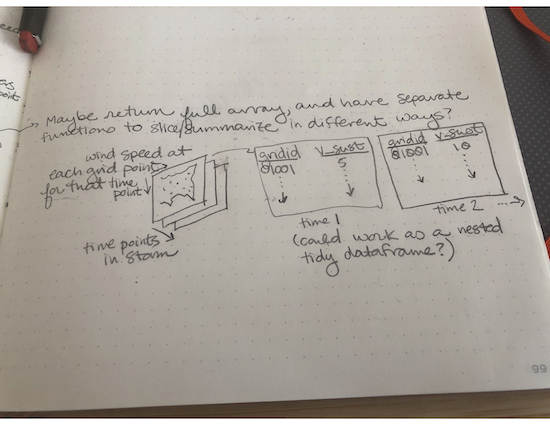 Maybe return full array, and have separate
functions to slice/summarize in different ways?
wind speed at
each grid point
for that time
point
time points
in storm
gridid v_sust
01001 5
time 1
gridid v_sust
01001 10
time 2
(could work as a nested
tidy dataframe?)
99